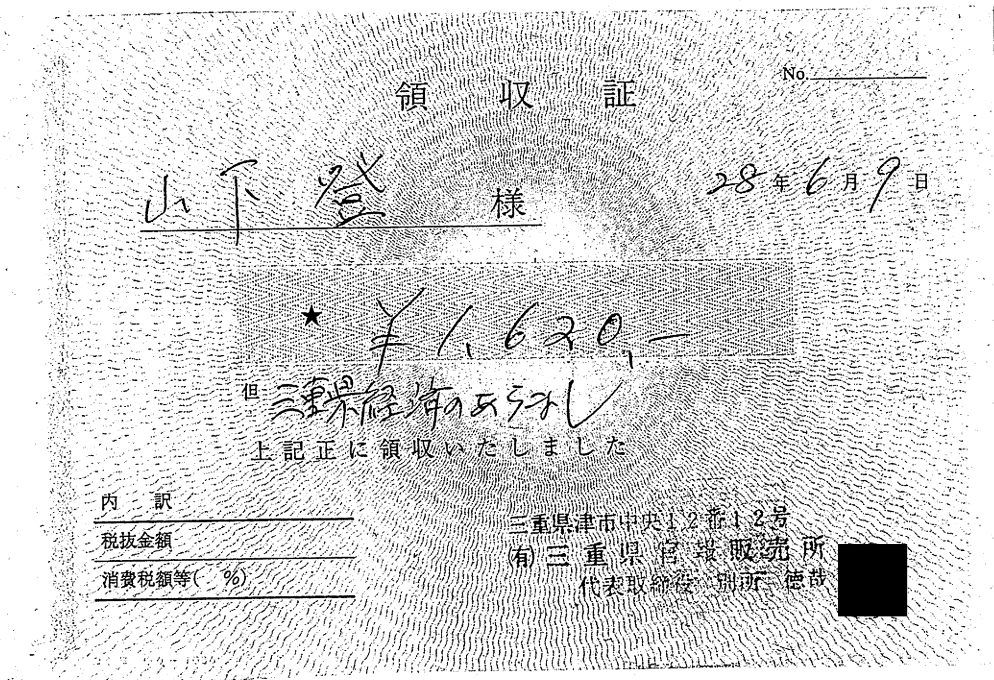 No.
領収証
山下登 様
28年6月9日
★ ¥1,620,-
但 三重県経済のあらまし
上記正に領収いたしました
内訳
税抜金額
消費税額等( %)
三重県津市中央12番12号
(有)三重県官報販売所
代表取締役 別所 徳哉